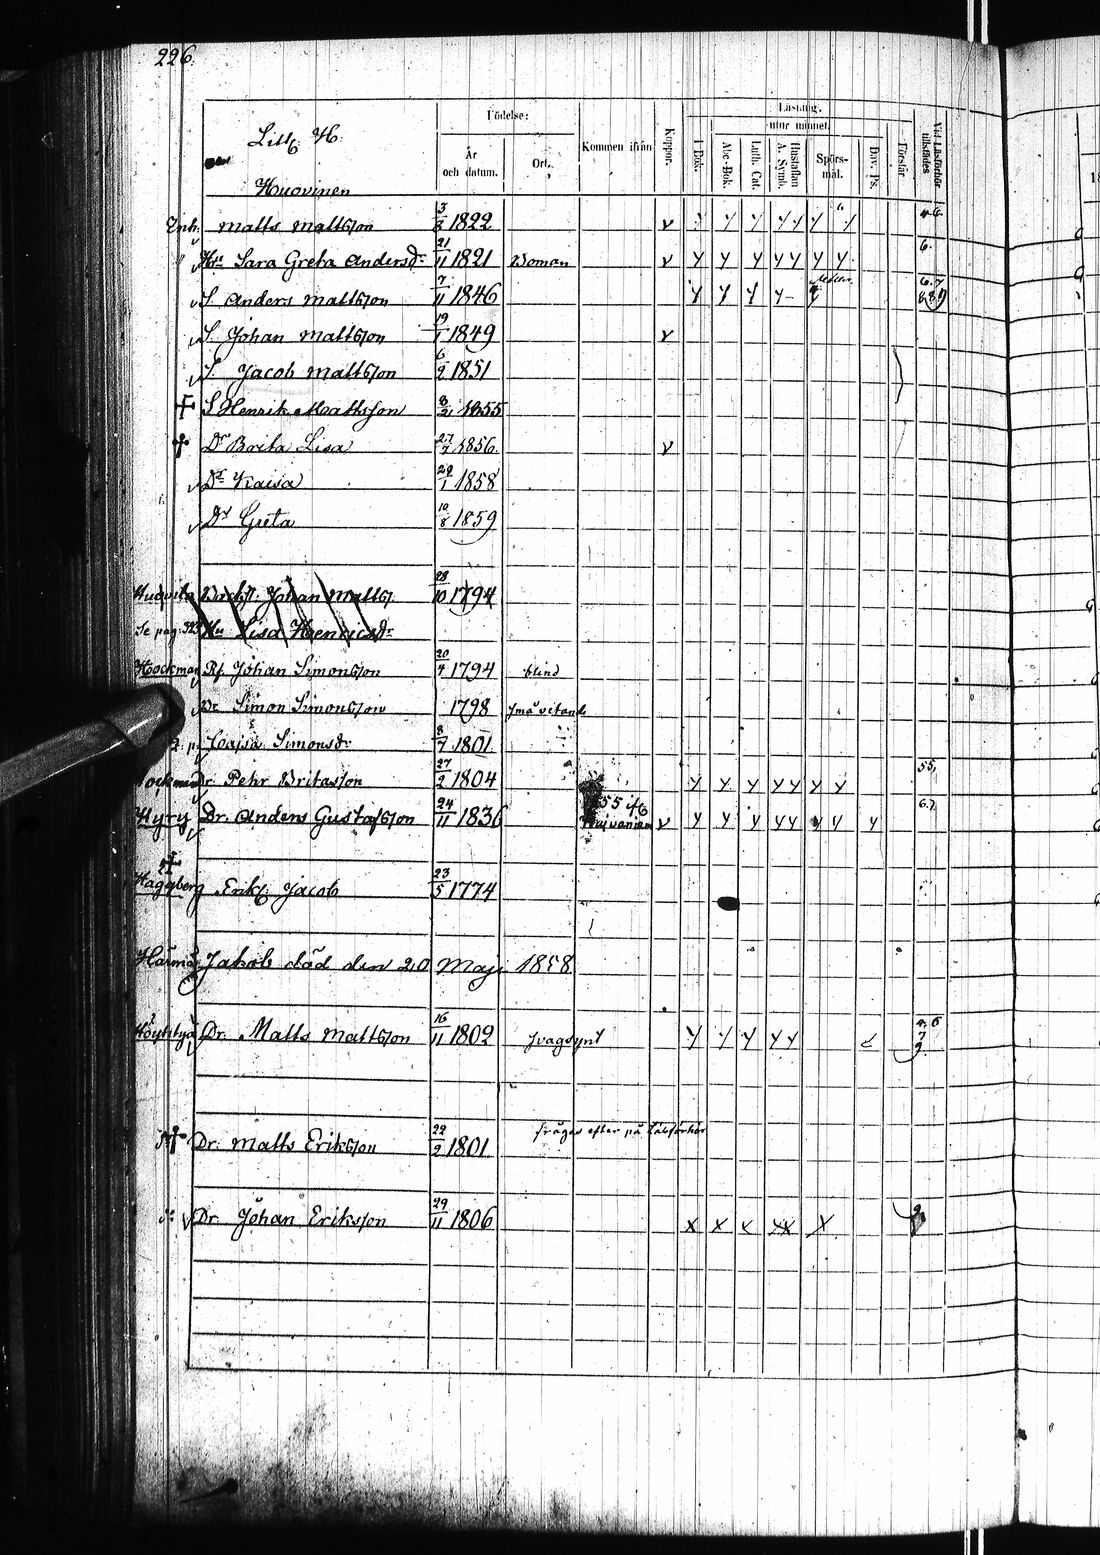 226.
Litt. H.
Huovinen
Födelse:
År och datum.
Ort.
Kommen ifrån
Koppor.
Läsning.
utur minnet.
I Bok.
Abc-Bok.
Luth. Cat.
Hustaflan A. Symb.
Spörs-mål.
Dav. Ps.
Förstår
Vid Läsförhör tillstädes
Enh. Matts Mattsson 3/2 1822 v
Hu Sara Greta Andersdr 21/11 1821 v 6.
S. Anders Mattsson 7/11 1846 6.7
S. Johan Mattsson 19/1 1849 v
S. Jacob Mattsson 6/2 1851
S Henrik Mattsson 8/2 1855
Dr Brita Lisa 27/7 1856. v
Dr Kaisa 29/1 1858
Dr Greta 10/8 1859
Johan Matts. 28/10 1794
Se pag: 323 Hu Lisa Henricsdr
Hockman Johan Simonsson 20/4 1794 blind
Dr Simon Simonsson 1798 små vetande
Cajsa Simonsdr 8/7 1801
Dr. Pehr Britasson 27/2 1804 55,
Hyry Dr. Anders Gustafsson 24/11 1836 v 6.7
Haggberg Erik Jacob 23/5 1774
Jakob död den 20 Maji 1858
Dr. Matts Mattsson 16/11 1802 svagsynt
Dr. Matts Eriksson 22/9 1801 frågas efter på Läsförhör
Dr Johan Eriksson 29/11 1806 x x x xx x